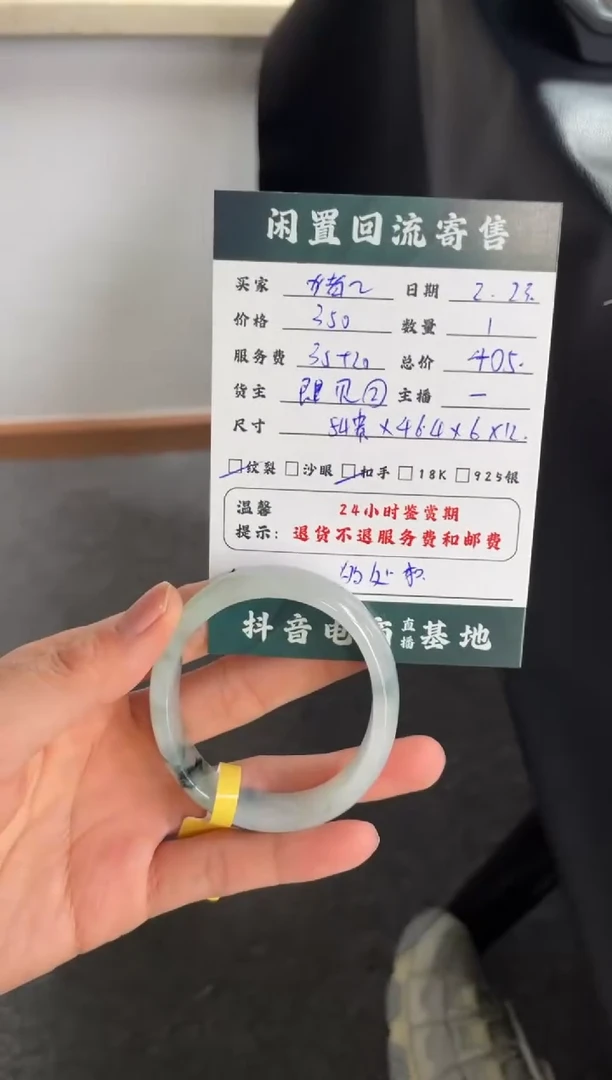 闲置回流寄售
买家 日期 2.23.
价格 350 数量 1
服务费 35+20 总价 405.
货主 ② 主播 一
尺寸 54贵×46.4×6×12.
纹裂 沙眼 扣手 18K 925银
温馨 24小时鉴赏期
提示: 退货不退服务费和邮费
抖音电 直播基地